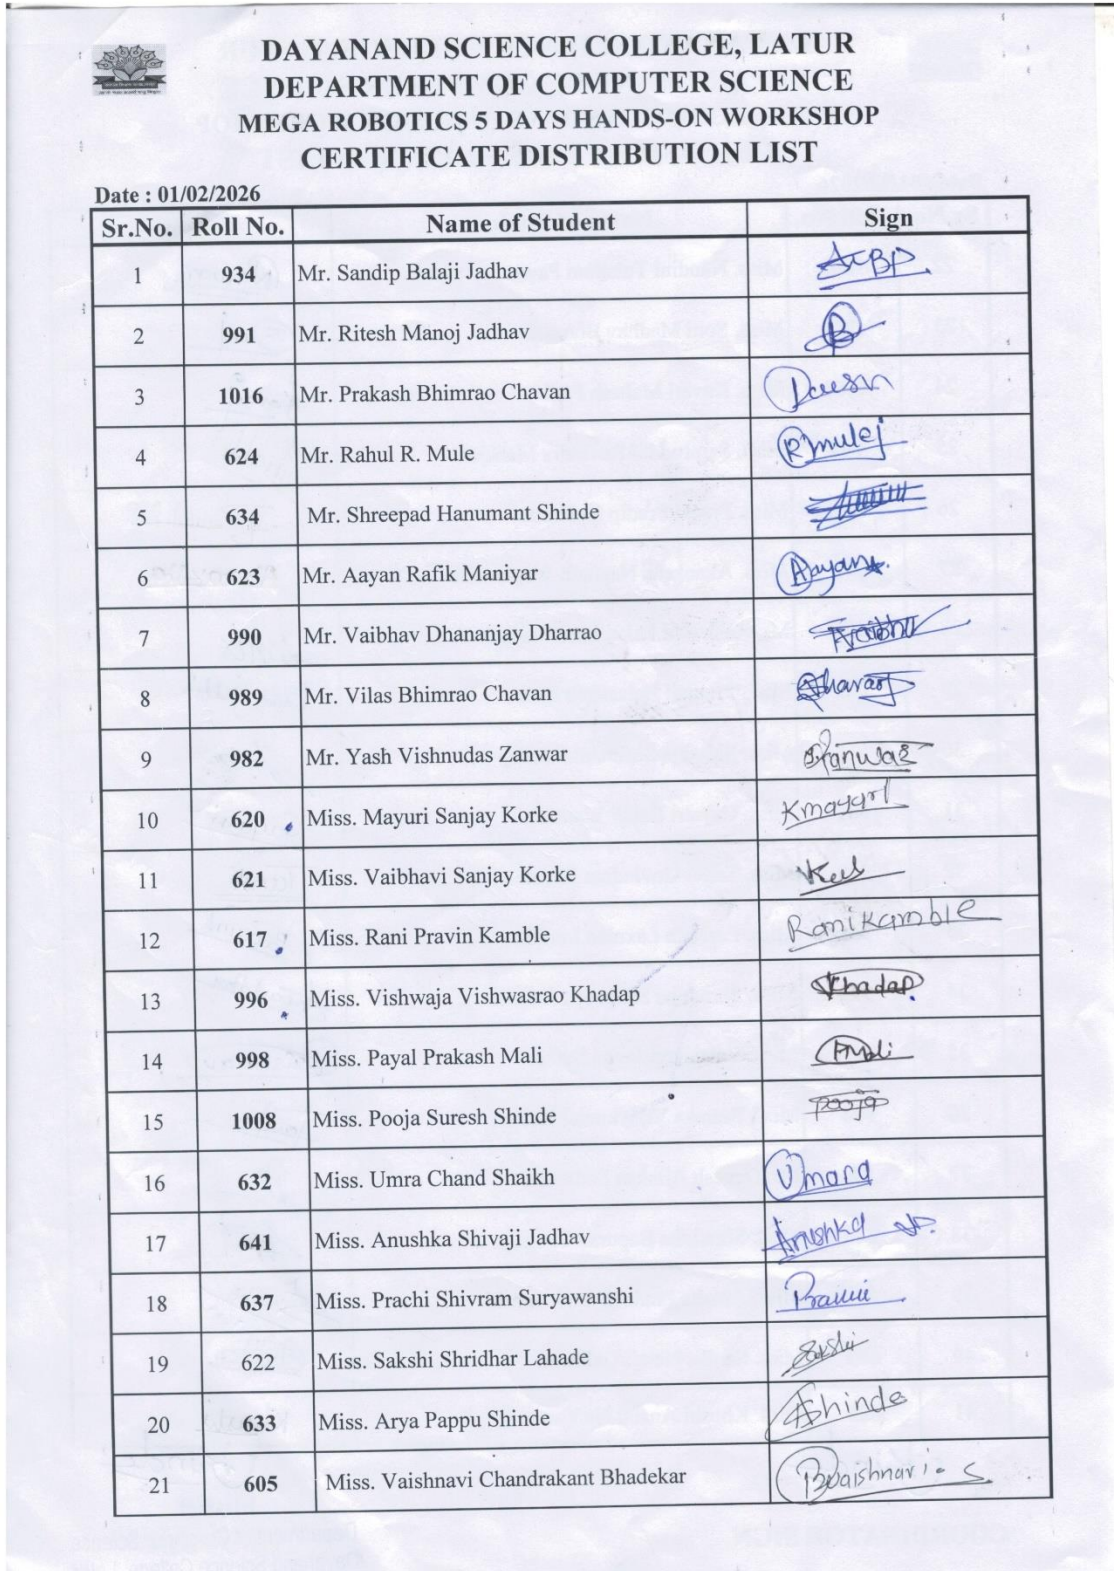 DAYANAND SCIENCE COLLEGE, LATUR
DEPARTMENT OF COMPUTER SCIENCE
MEGA ROBOTICS 5 DAYS HANDS-ON WORKSHOP
CERTIFICATE DISTRIBUTION LIST
Date : 01/02/2026
Sr.No. Roll No. Name of Student Sign
1 934 Mr. Sandip Balaji Jadhav
2 991 Mr. Ritesh Manoj Jadhav
3 1016 Mr. Prakash Bhimrao Chavan
4 624 Mr. Rahul R. Mule Rmulej
5 634 Mr. Shreepad Hanumant Shinde
6 623 Mr. Aayan Rafik Maniyar Aayan
7 990 Mr. Vaibhav Dhananjay Dharrao
8 989 Mr. Vilas Bhimrao Chavan
9 982 Mr. Yash Vishnudas Zanwar
10 620 Miss. Mayuri Sanjay Korke
11 621 Miss. Vaibhavi Sanjay Korke
12 617 Miss. Rani Pravin Kamble Ranikamble
13 996 Miss. Vishwaja Vishwasrao Khadap Khadap
14 998 Miss. Payal Prakash Mali
15 1008 Miss. Pooja Suresh Shinde pooja
16 632 Miss. Umra Chand Shaikh Umara
17 641 Miss. Anushka Shivaji Jadhav Anushka
18 637 Miss. Prachi Shivram Suryawanshi
19 622 Miss. Sakshi Shridhar Lahade Sakshi
20 633 Miss. Arya Pappu Shinde AShinde
21 605 Miss. Vaishnavi Chandrakant Bhadekar Bvaishnavi. S.